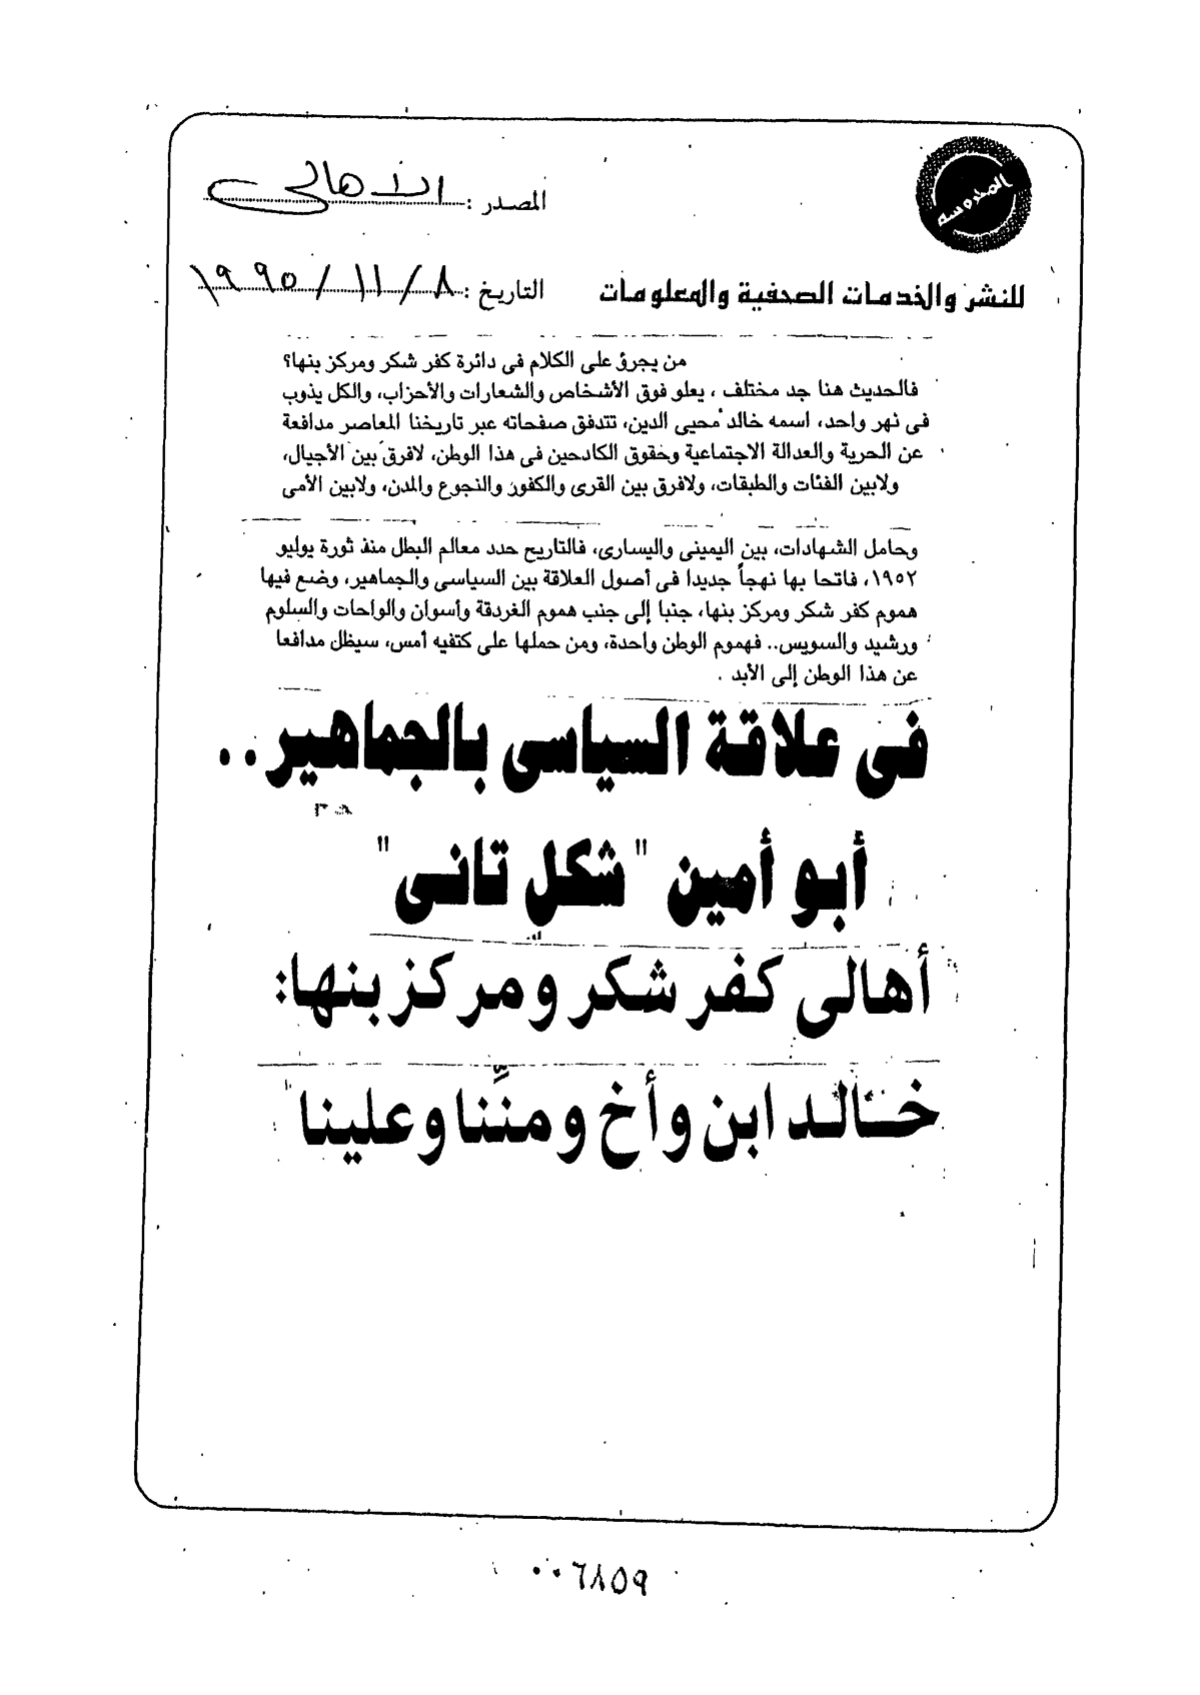 المحروسة
المصدر : الأهالى
للنشر والخدمات الصحفية والمعلومات
التاريخ : ٨ / ١١ / ١٩٩٥
من يجرؤ على الكلام فى دائرة كفر شكر ومركز بنها؟
فالحديث هنا جد مختلف ، يعلو فوق الأشخاص والشعارات والأحزاب، والكل يذوب
فى نهر واحد، اسمه خالد محيى الدين، تتدفق صفحاته عبر تاريخنا المعاصر مدافعة
عن الحرية والعدالة الاجتماعية وحقوق الكادحين فى هذا الوطن، لافرق بين الأجيال،
ولابين الفئات والطبقات، ولافرق بين القرى والكفور والنجوع والمدن، ولابين الأمى
وحامل الشهادات، بين اليمينى واليسارى، فالتاريح حدد معالم البطل منذ ثورة يوليو
١٩٥٢، فاتحا بها نهجاً جديدا فى أصول العلاقة بين السياسى والجماهير، وضع فيها
هموم كفر شكر ومركز بنها، جنبا إلى جنب هموم الغردقة وأسوان والواحات والسلوم
ورشيد والسويس.. فهموم الوطن واحدة، ومن حملها على كتفيه أمس، سيظل مدافعا
عن هذا الوطن إلى الأبد .
فى علاقة السياسى بالجماهير..
أبو أمين "شكل تانى"
أهالى كفر شكر ومركز بنها:
خالد ابن وأخ ومنَّنا وعلينا
٠٠٦٨٥٩